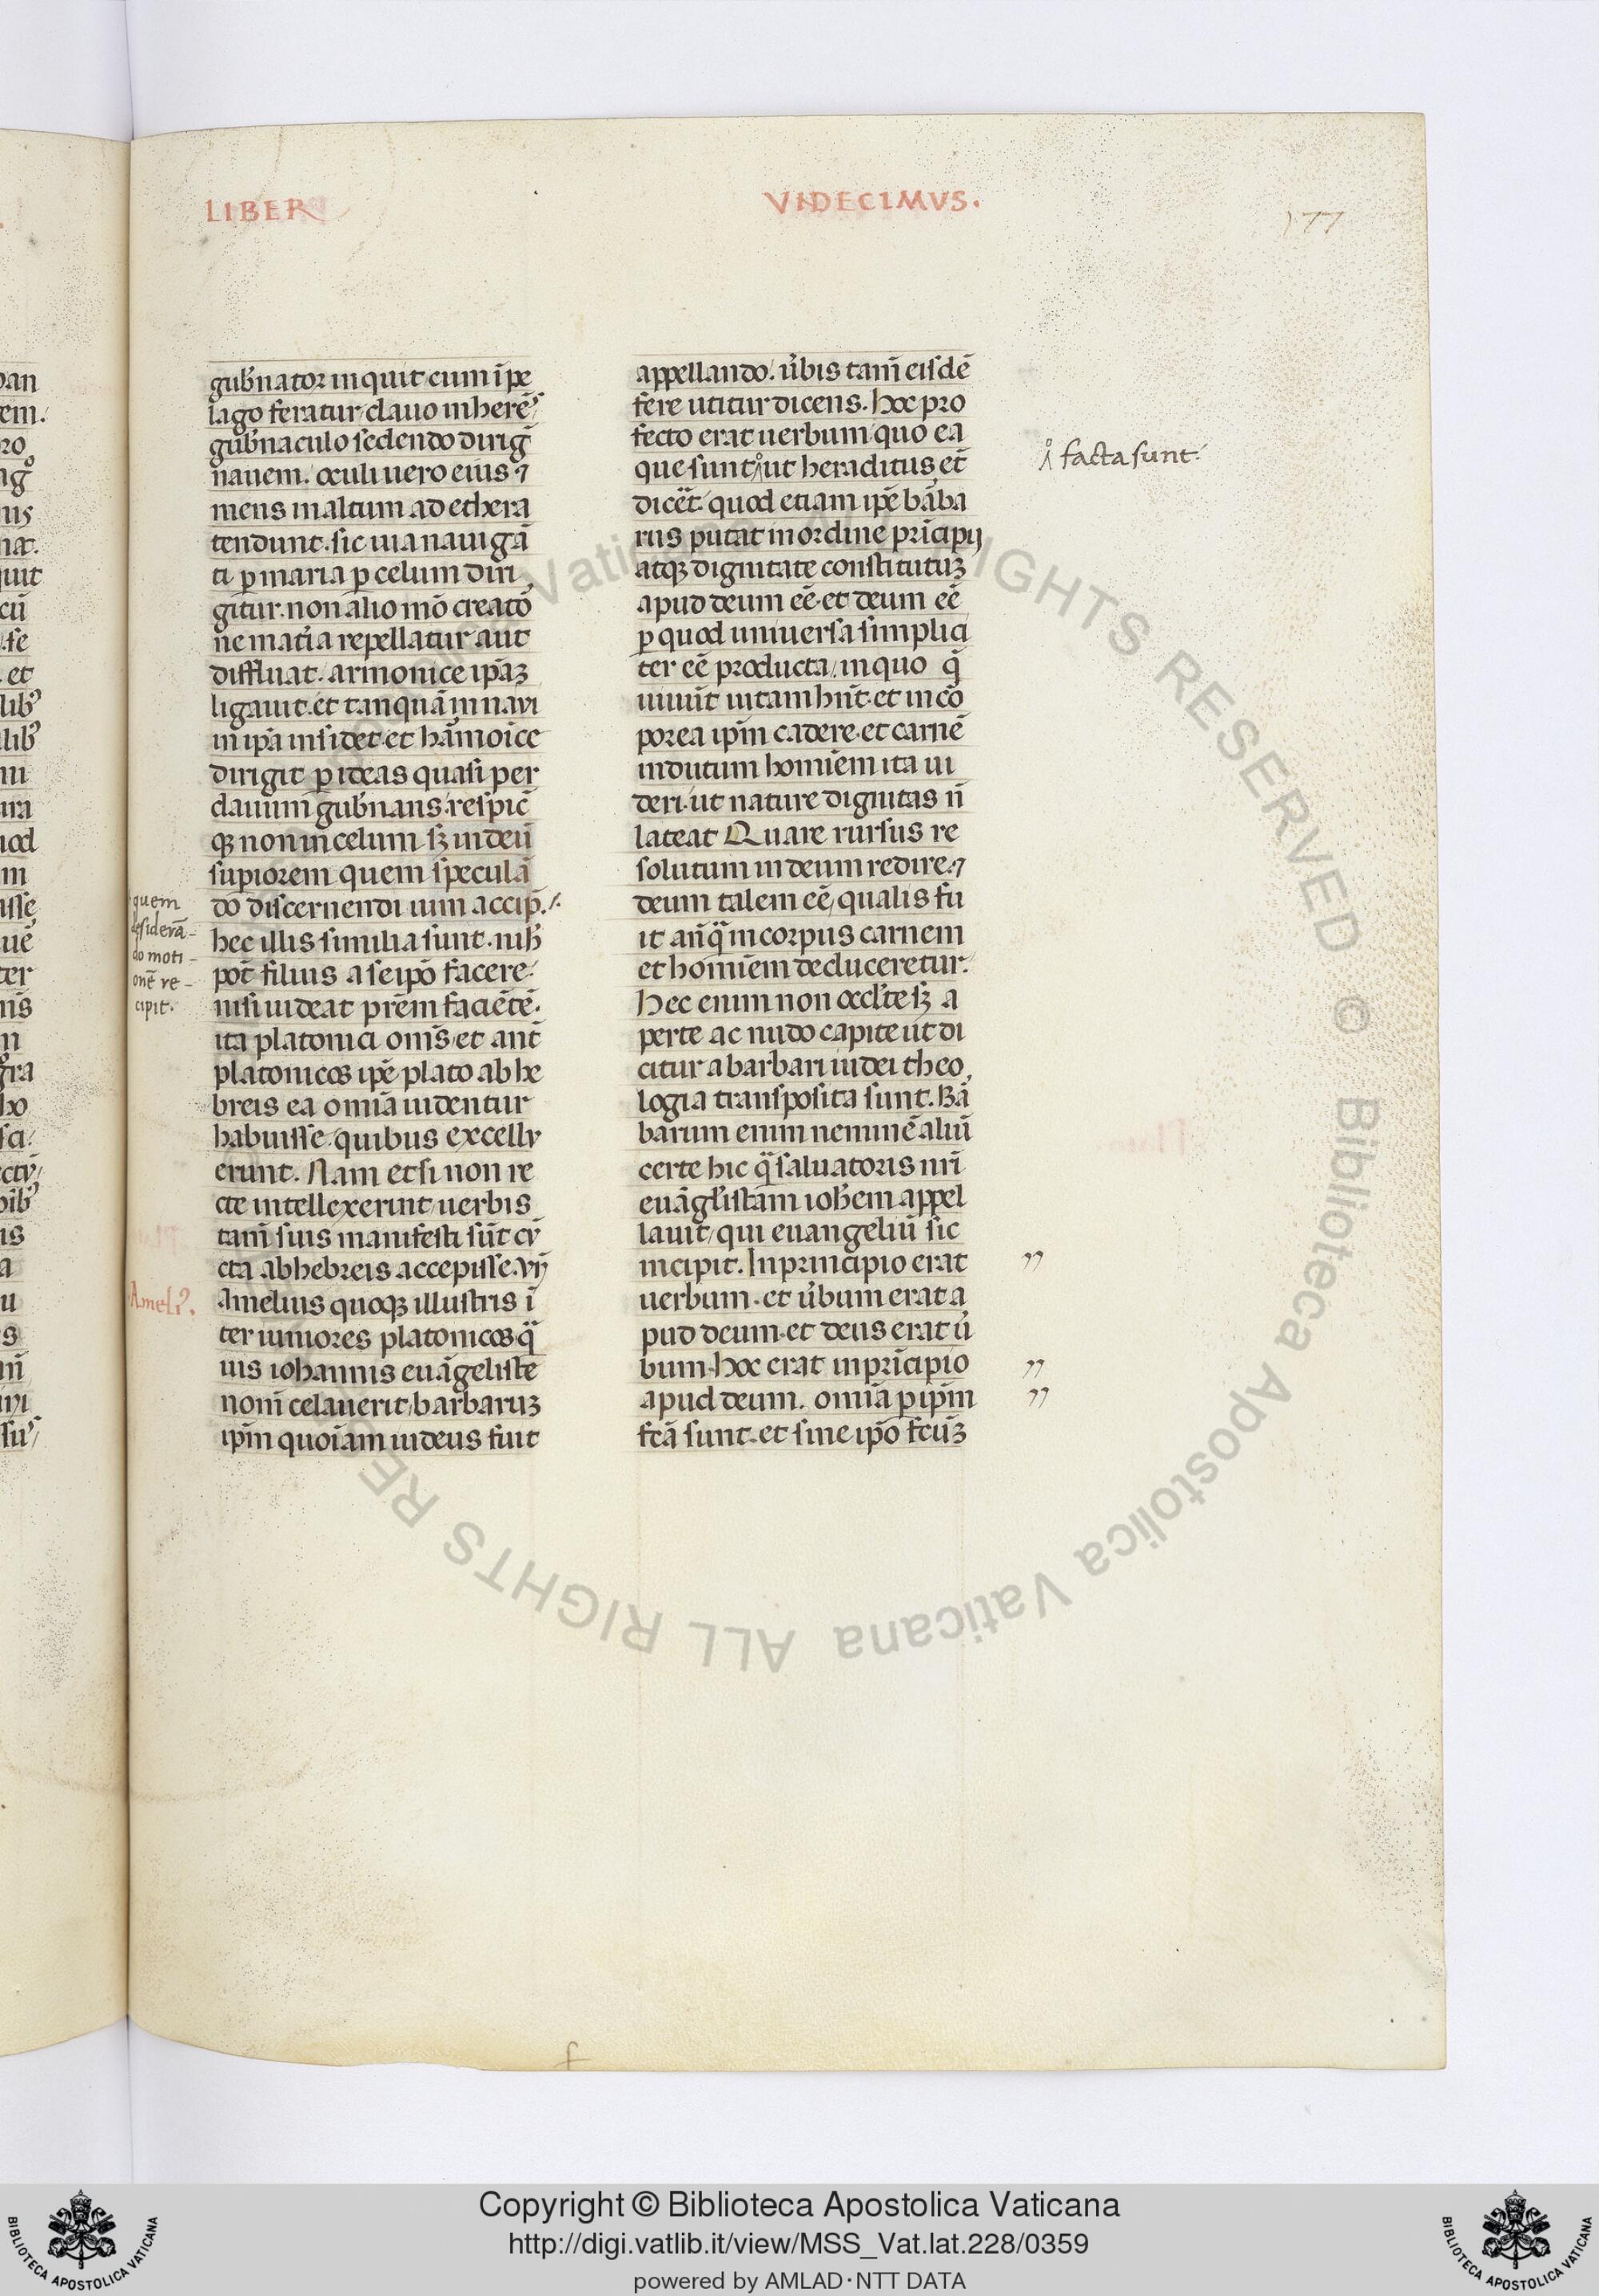 LIBER
VNDECIMVS.
177
gub̄nator inquit cum ī pe
lago feratur clauo inherēs
gub̄naculo sedendo diriḡ
nauem. oculi uero eius ⁊
mens in altum ad ethera
tendunt. sic uia nauigā
ti ꝑ maria ꝑ celum diri
gitur. non alio mō creato
ne mat̄ia repellatur aut
diffluat. armonice ip̄aꝫ
ligauit. et tanquā in navi
in ip̄a insidet. et hāmoīce
dirigit ꝑ ideas quasi per
clauum gub̄nans. respic̄
qꝫ non in celum sꝫ in deū
supiorem quem speculā
do discernendi uim accip̄./.
hec illis similia sunt. nih̄
pot̄ filius a seip̄o facere.
nisi uideat pr̄em faciētē.
ita platonici om̄s et ant̄
platonicos ip̄e plato ab he
breis ea omīa uidentur
habuisse. quibus excellv
erunt. Nam etsi non re
cte intellexerint uerbis
tam̄ suis manifesti sūt cv̄
cta ab hebreis accepisse. vn̄
Amelius quoqꝫ illustris ī
ter iuniores platonicos. q̄
uis iohannis euāgeliste
nom̄ celauerit, barbaruꝫ
ip̄m quoīam iudeus fuit
quem
desiderā-
do moti-
onē re-
cipit.
Ameliꝰ.
appellando. ūbis tam̄ eisdē
fere utitur dicens. Hoc pro
fecto erat uerbum quo ea
que sunt ut heraclitus et̄
dicēt. quod etiam ip̄e bāba
rus putat in ordine prīcipij
atqꝫ dignitate constitutuꝫ
apud deum eē. et deum eē
ꝑ quod uniuersa simplici
ter eē producta, in quo q̄
uiuūt uitam hn̄t. et in cō
pora ip̄m cadere. et carnē
indutum homīem ita ui
deri. ut nature dignitas n̄
lateat Quare rursus re
solutum in deum redire. ⁊
deum talem eē, qualis fu
it an̄q̄ in corpus carnem
et homīem deduceretur.
Hec enim non occl̄te sꝫ a
perte ac nudo capite ut di
citur a barbari iudei theo
logia transposita sunt. Bā
barum enim neminē aliū
certe hic q̄ saluatoris nr̄i
euāgl̄istam ioh̄em appel
lauit, qui euangeliū sic
incipit. In principio erat
uerbum. et ūbum erat a
pud deum. et deus erat ū
bum. hoc erat in prīcipio
apud deum. omīa ꝑ ip̄m
fc̄a sunt. et sine ip̄o fc̄uꝫ
facta sunt.
Copyright © Biblioteca Apostolica Vaticana
http://digi.vatlib.it/view/MSS_Vat.lat.228/0359
powered by AMLAD·NTT DATA
BIBLIOTECA APOSTOLICA VATICANA
BIBLIOTECA APOSTOLICA VATICANA
© Biblioteca Apostolica Vaticana ALL RIGHTS RESERVED